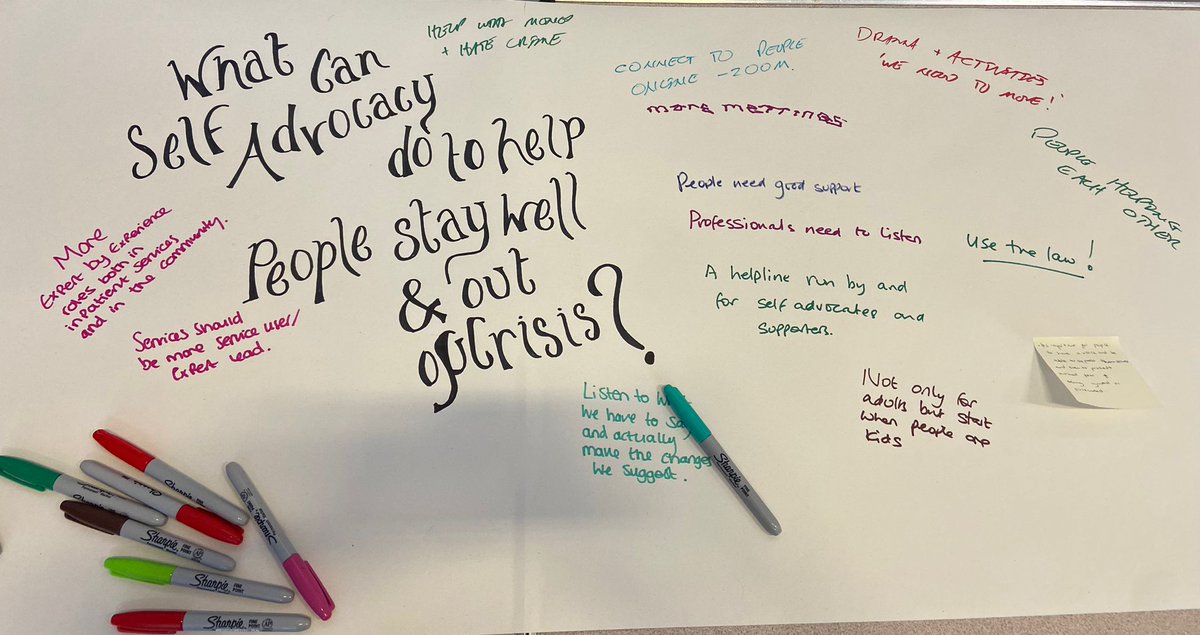 What Can
Self Advocacy
do to help
People stay well
& out
of Crisis?
HELP WITH MONEY
+ HATE CRIME
CONNECT TO PEOPLE
ONLINE - ZOOM.
MORE MEETINGS
DRAMA + ACTIVITIES
'WE NEED TO MOVE!'
PEOPLE HELPING
EACH OTHER
People need good support
Professionals need to listen
Use the law!
A helpline run by and
for self advocates and
supporters.
More
Expert by Experience
roles both in
inpatient services
and in the community.
Services should
be more service user/
Expert lead.
Listen to
we have to say
and actually
make the changes
we suggest.
Not only for
adults but start
when people are
kids
to have a voice and be
Sharpie
FINE POINT
Sharpie
Sharpie
FINE POINT
Sharpie
FINE POINT
Sharpie
FINE POINT
Sharpie
Sharpie